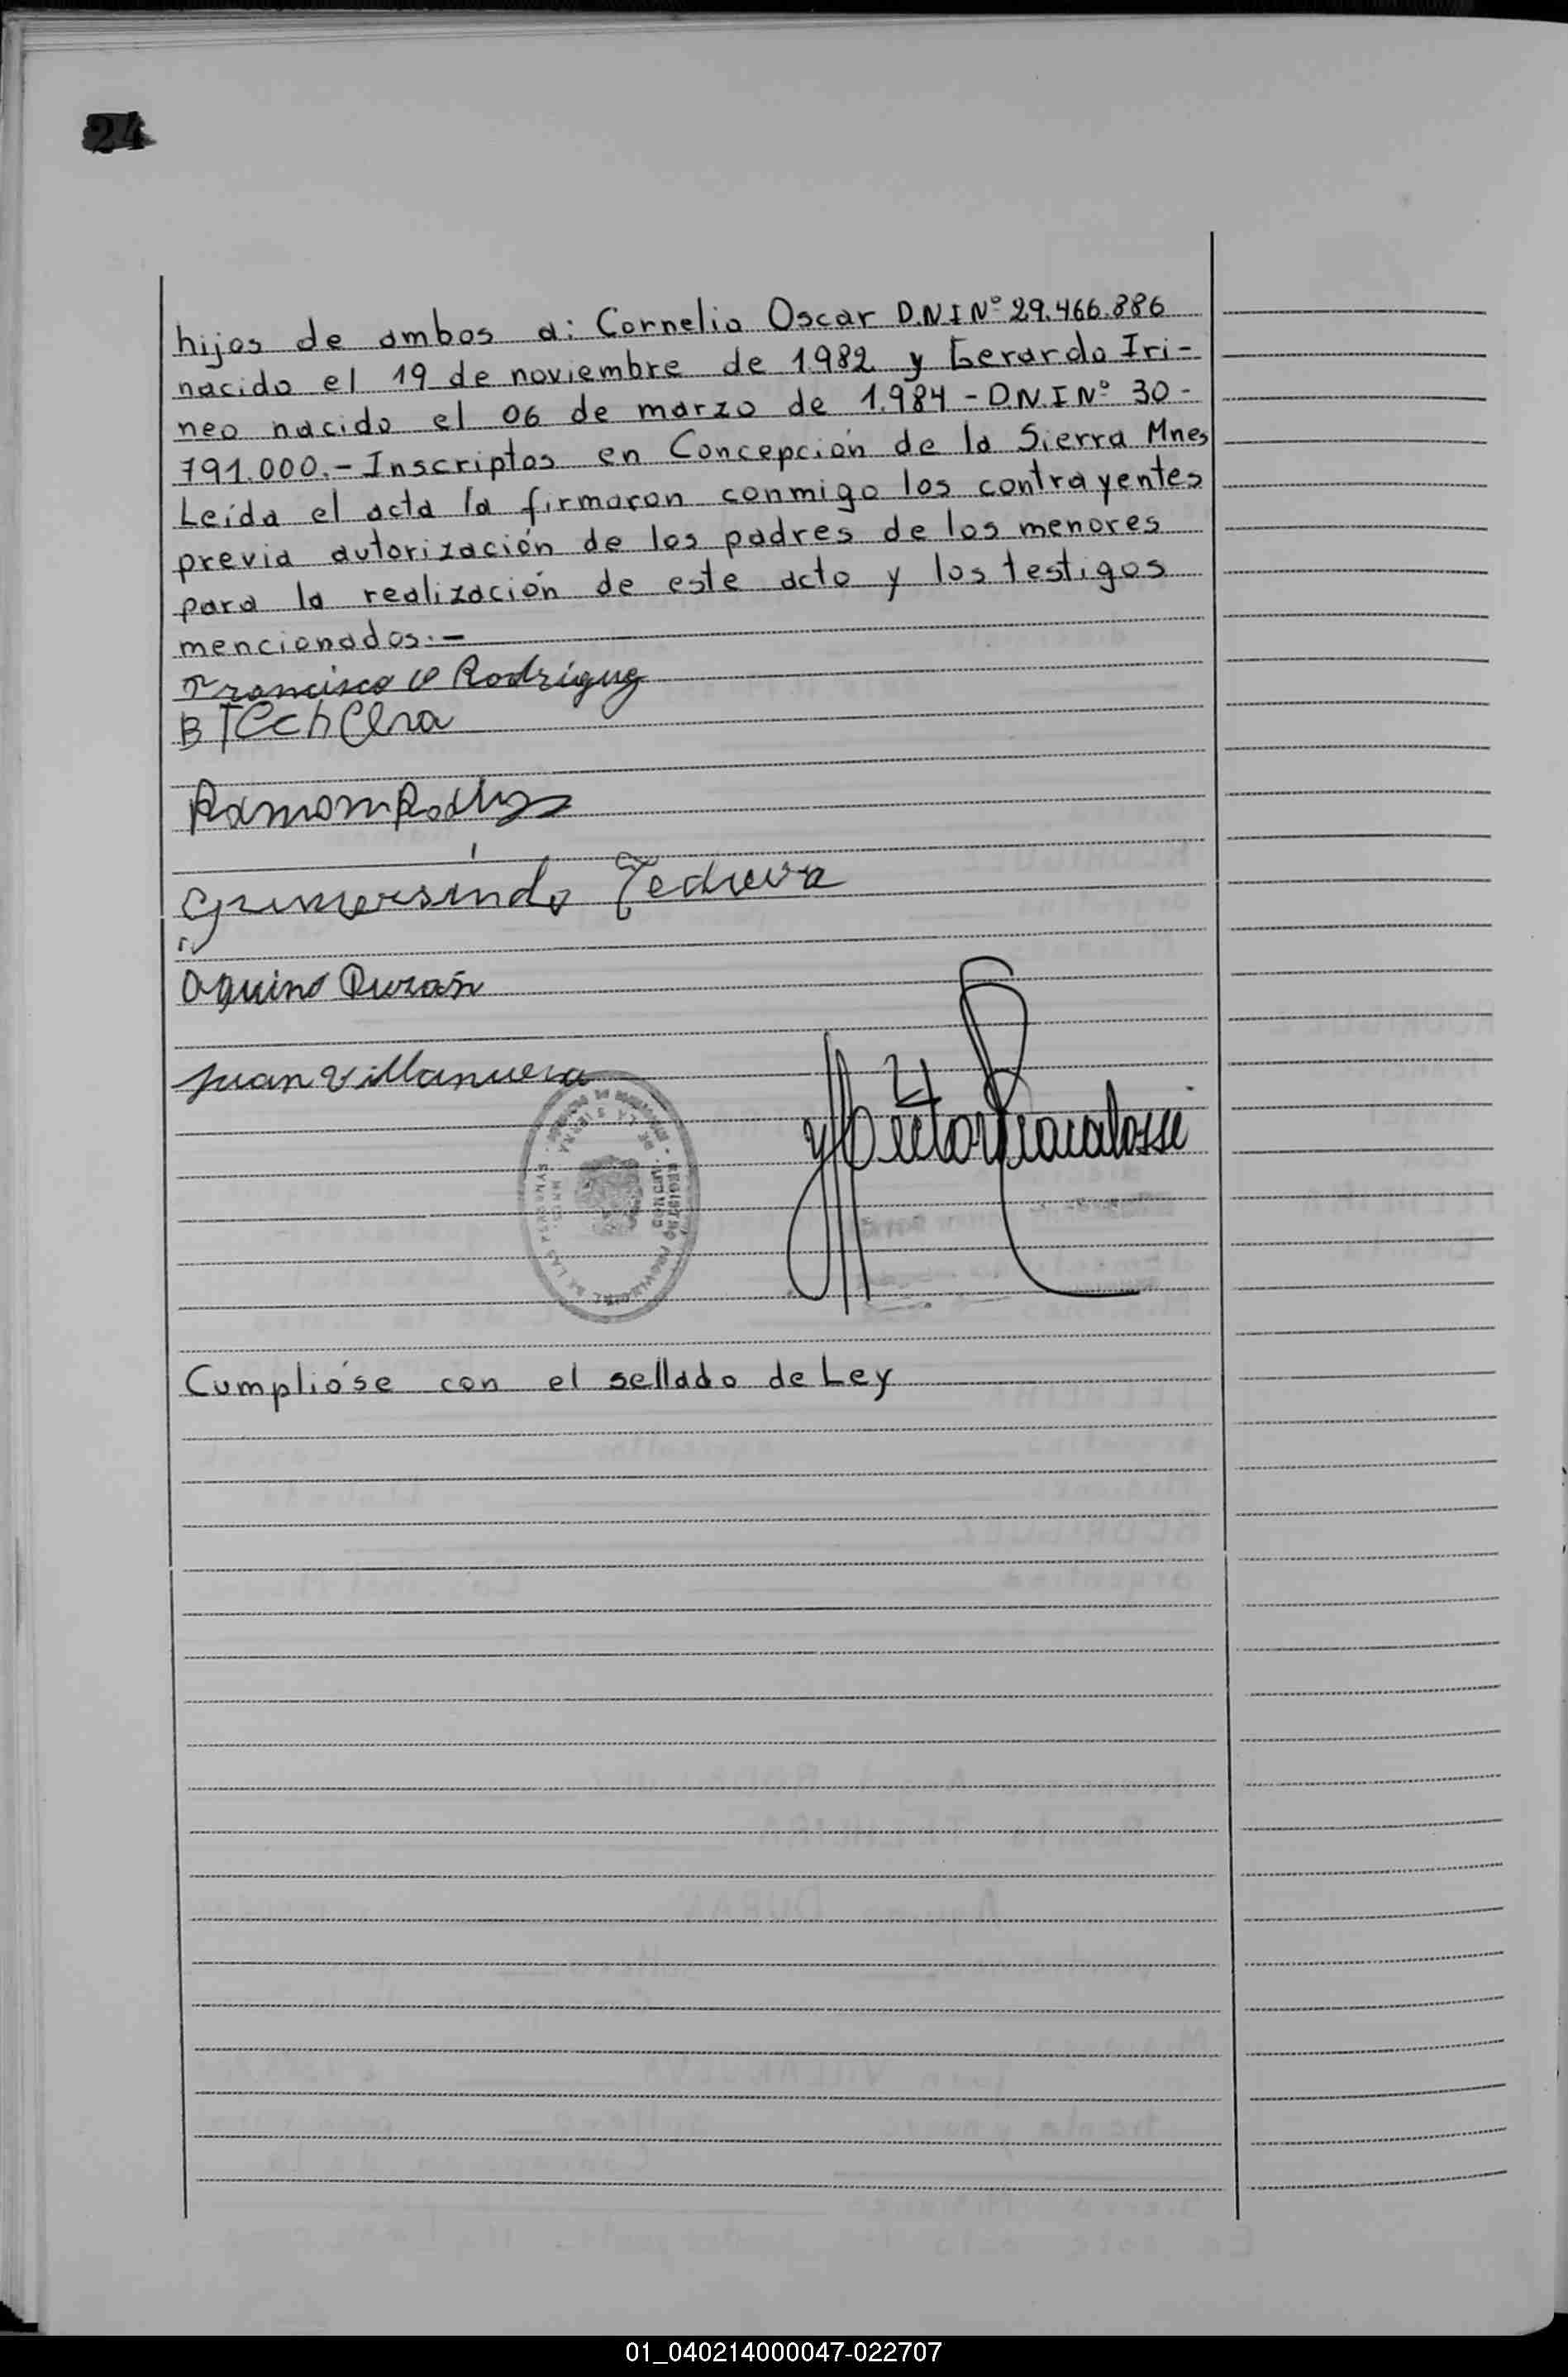 24
hijos de ambos a: Cornelio Oscar D.N.I Nº 29.466.886
nacido el 19 de noviembre de 1.982 y Gerardo Iri-
neo nacido el 06 de marzo de 1.984 - D.N.I Nº 30-
791.000.- Inscriptos en Concepción de la Sierra Mnes
Leída el acta la firmaron conmigo los contrayentes
previa autorización de los padres de los menores
para la realización de este acto y los testigos
mencionados.-
Francisco Rodríguez
B Techera
Ramon
Gumersindo
Aquino Durán
Juan Villanueva
Hector
DE LA SIERRA
Cumplióse con el sellado de Ley
01_040214000047-022707